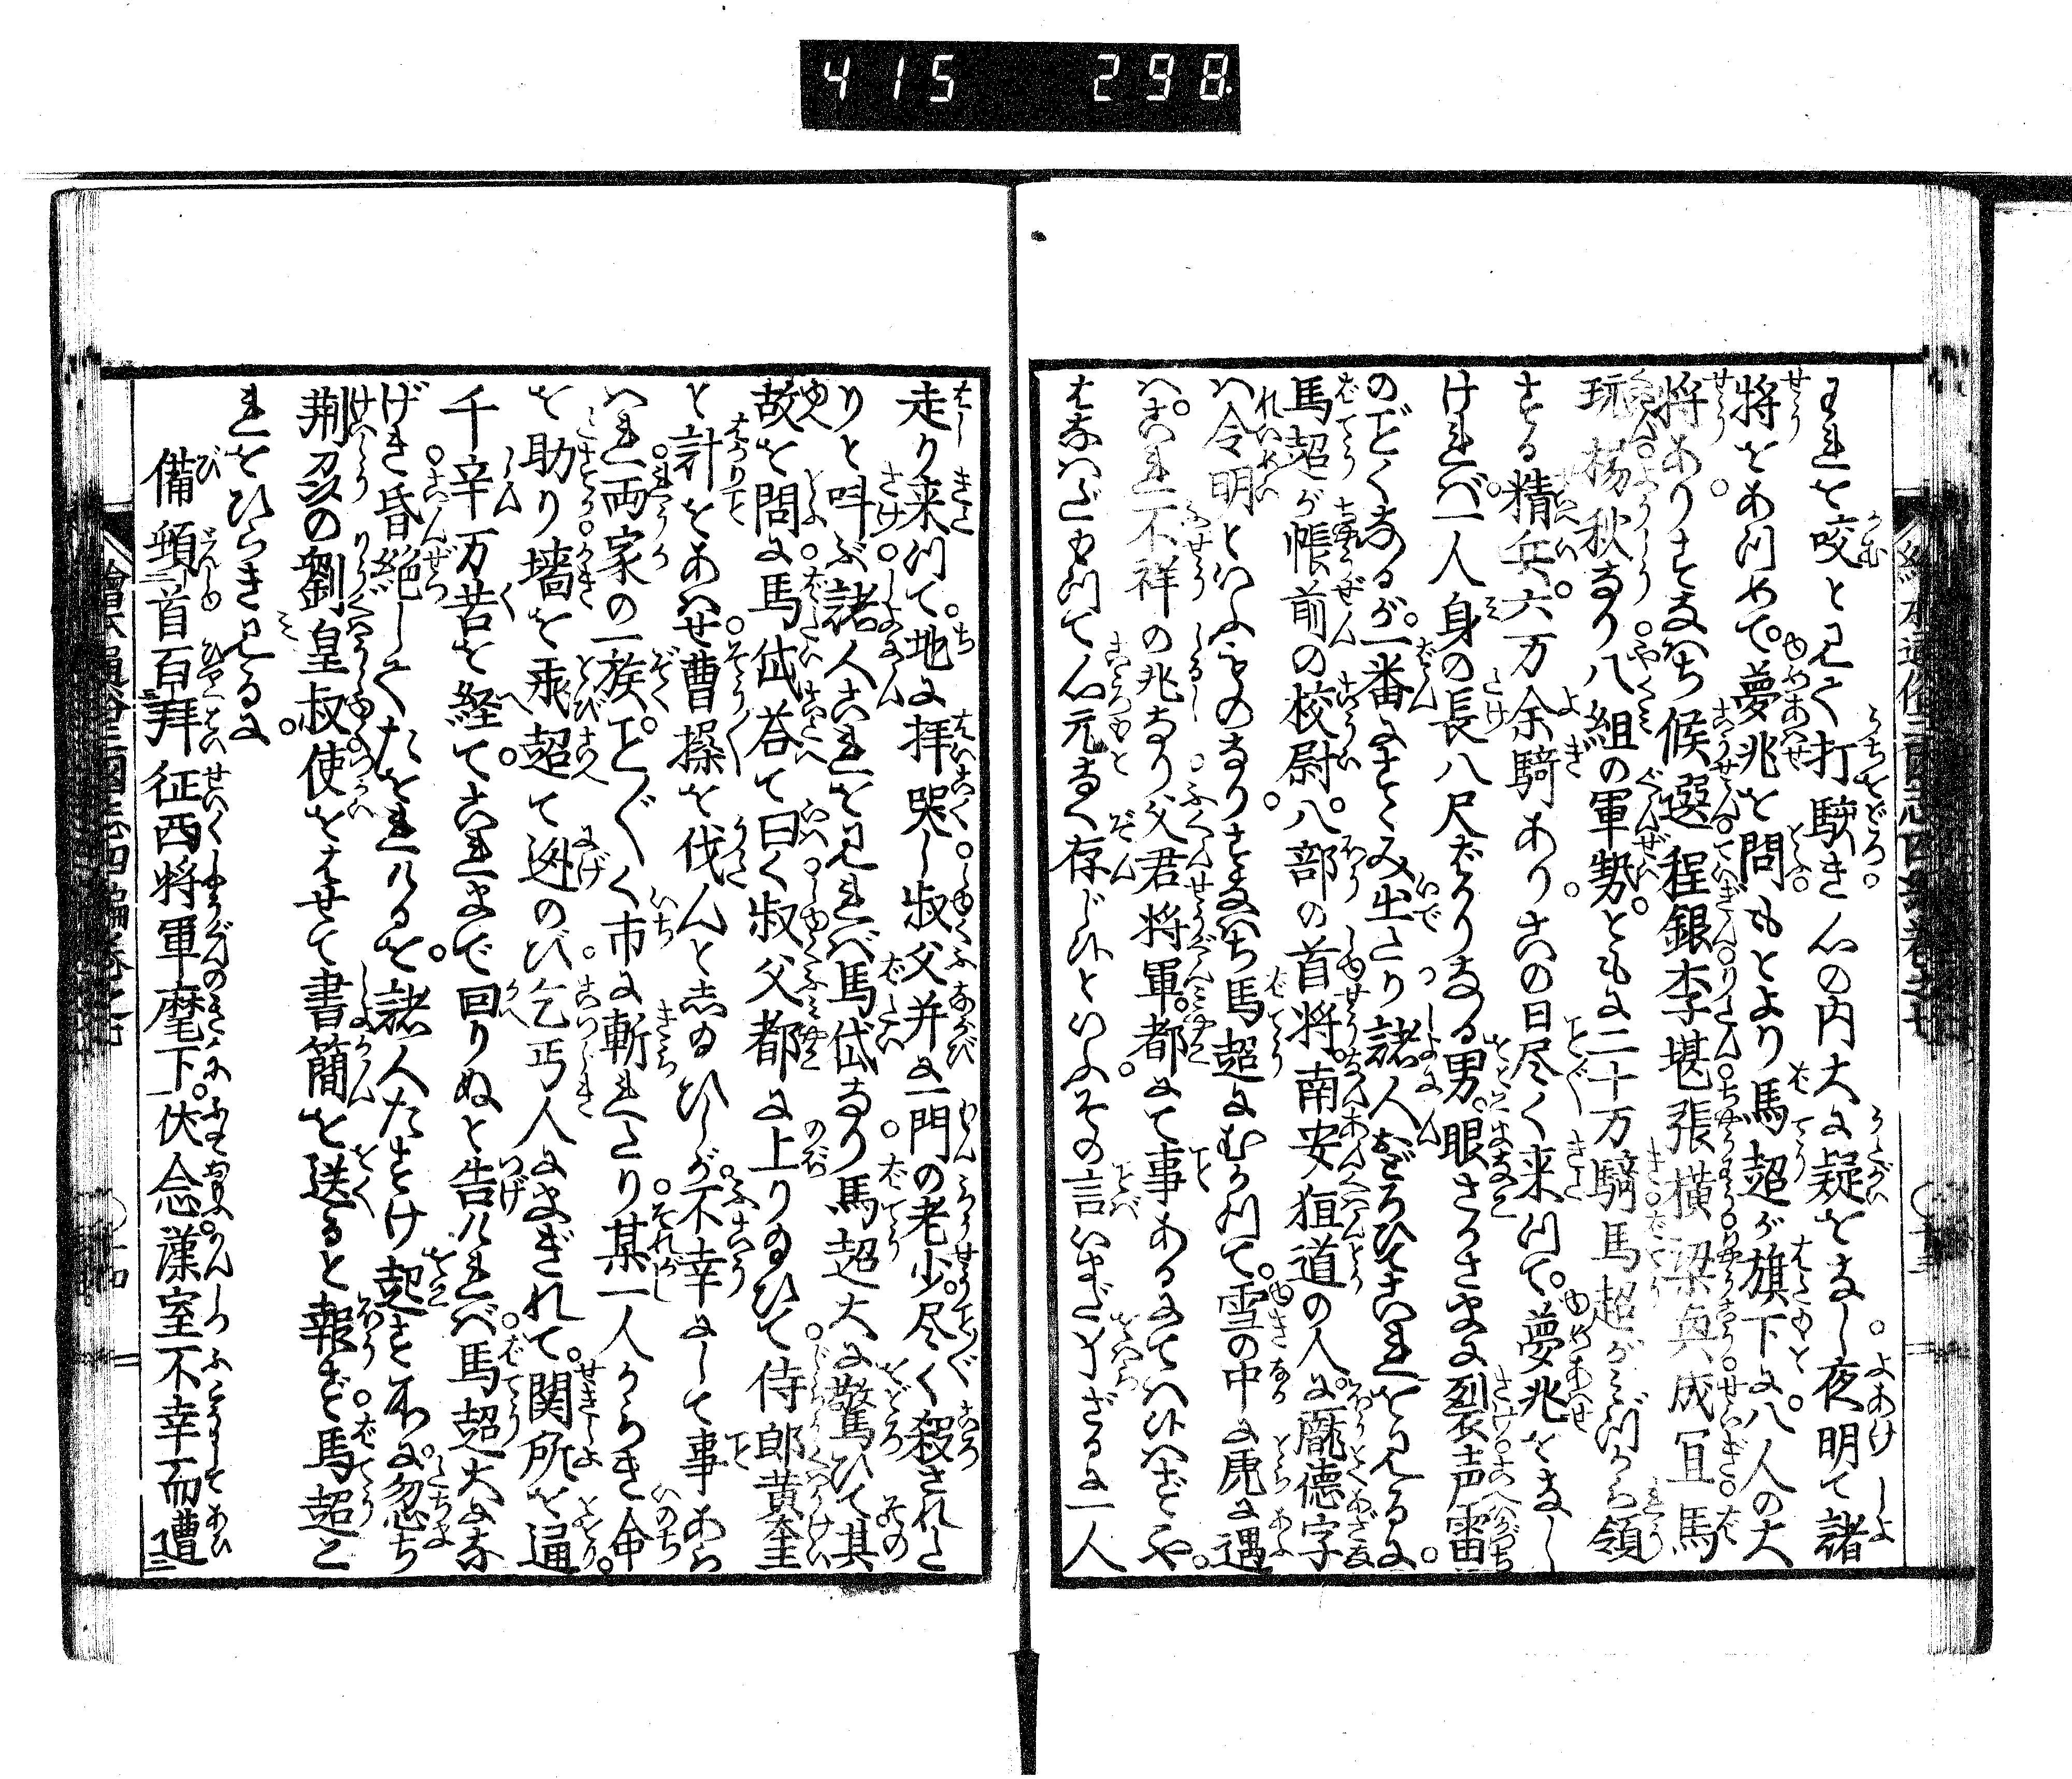 415 298
われを咬と見て打駭き心の内大に疑をなし夜明て諸
将をあつめて。夢兆を問もとより馬超が旗下に八人の大
将あり。すなはち候選程銀李堪張横梁興成宜馬
玩楊秋なり八組の軍勢。ともに二十万騎馬超がみづから領
する精兵六万余騎ありこの日尽く来つて。夢兆をまし
ければ一人身の長八尺ばかりなる男。眼さかさまに裂声雷
のごくなるが。一番にすゝみ出たり諸人おどろひてこれを見るに。
馬超が帳前の校尉。八部の首将。南安狟道の人に龐徳字
ハ令明といふものなりすなはち馬超にむかつて。雪の中に虎に遇
ハ。これ不祥の兆なり父君将軍。都にて事あるにてハ候ハずや。
はなハだもつて心元なく存じ候といふ。その言いまだ了ざるに一人
走り来つて。地に拝哭し叔父并に一門の老少。尽く殺された
りと叫ぶ諸人これを見れバ馬岱なり馬超大に驚ひて其
故を問に馬岱答て曰く叔父都に上りゐひて侍郎黄奎
と計をあハせ曹操を伐んとしゐひしが。不幸にして事あら
ハれ両家の一族。こと〴〵く市に斬れたり某一人からき命
を助り墻を乗超て迯のび乞丐人にまぎれて。関所を通り。
千辛万苦を経て。これまで回りぬと告けれバ馬超大にな
げき昏絶してたをれけるを。諸人たすけ起す処に。忽ち
荆州の劉皇叔使をはせて書簡を送ると報ず馬超こ
れをひらき見るに。
備頓首百拜征西将軍麾下。伏念漢室不幸而遭